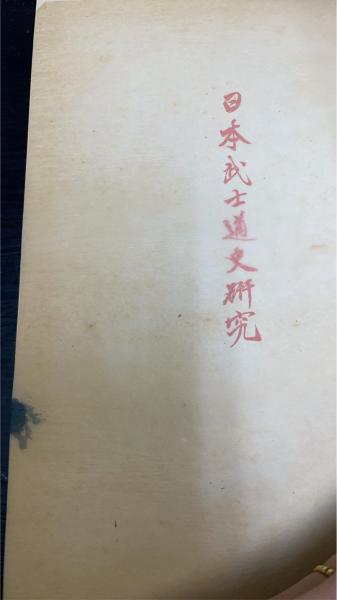 日本武士道史研究